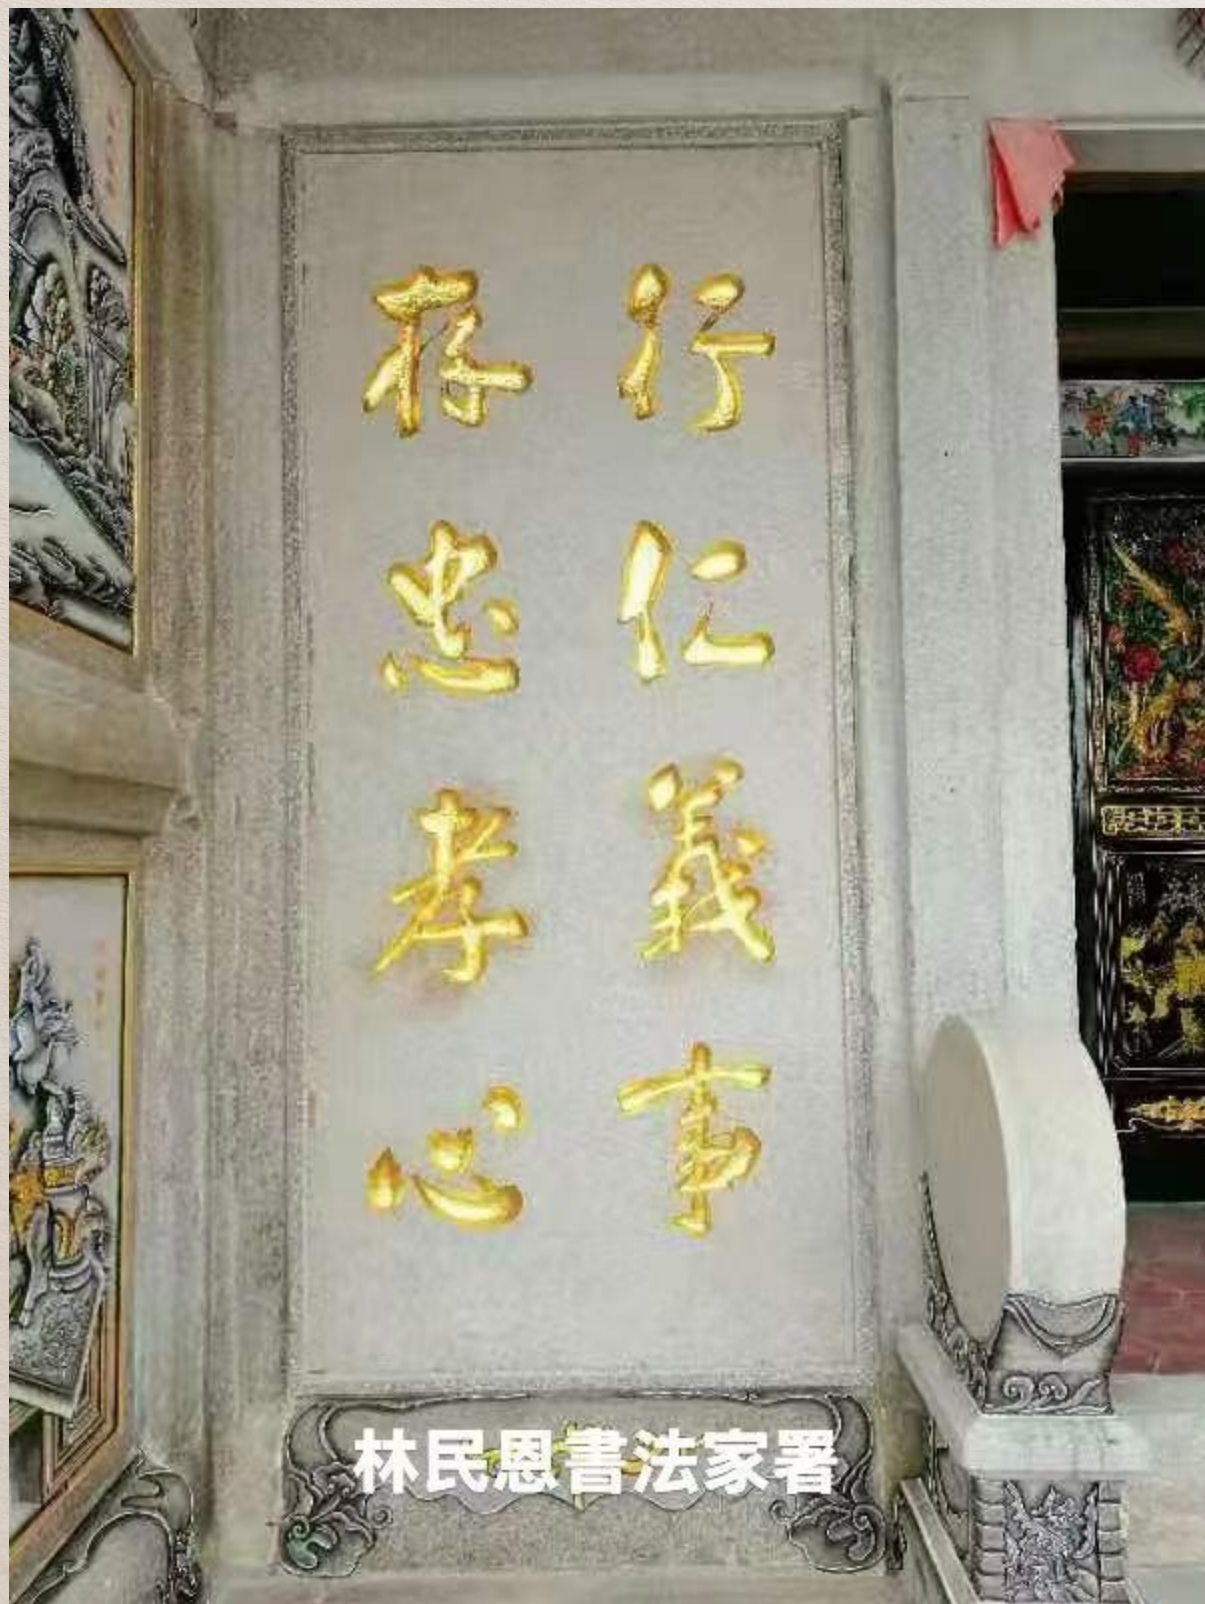 行仁義事
存忠孝心
林民恩書法家署